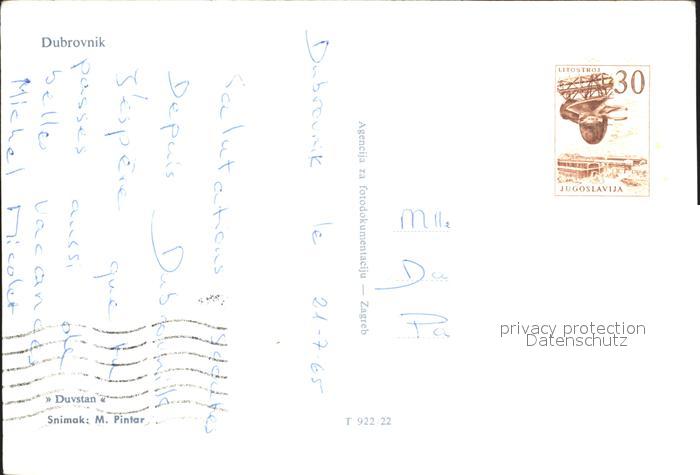 Dubrovnik
Dubrovnik le 21-7-65
Salutations scoutes
Depuis Dubrovnik
J'espère que tu
passes aussi de
belles vacances
Michel Nicolet
Agencija za fotodokumentaciju — Zagreb
LITOSTROJ
30
JUGOSLAVIJA
Mlle
Da
Pa
privacy protection
Datenschutz
» Duvstan «
Snimak: M. Pintar
T 922 22